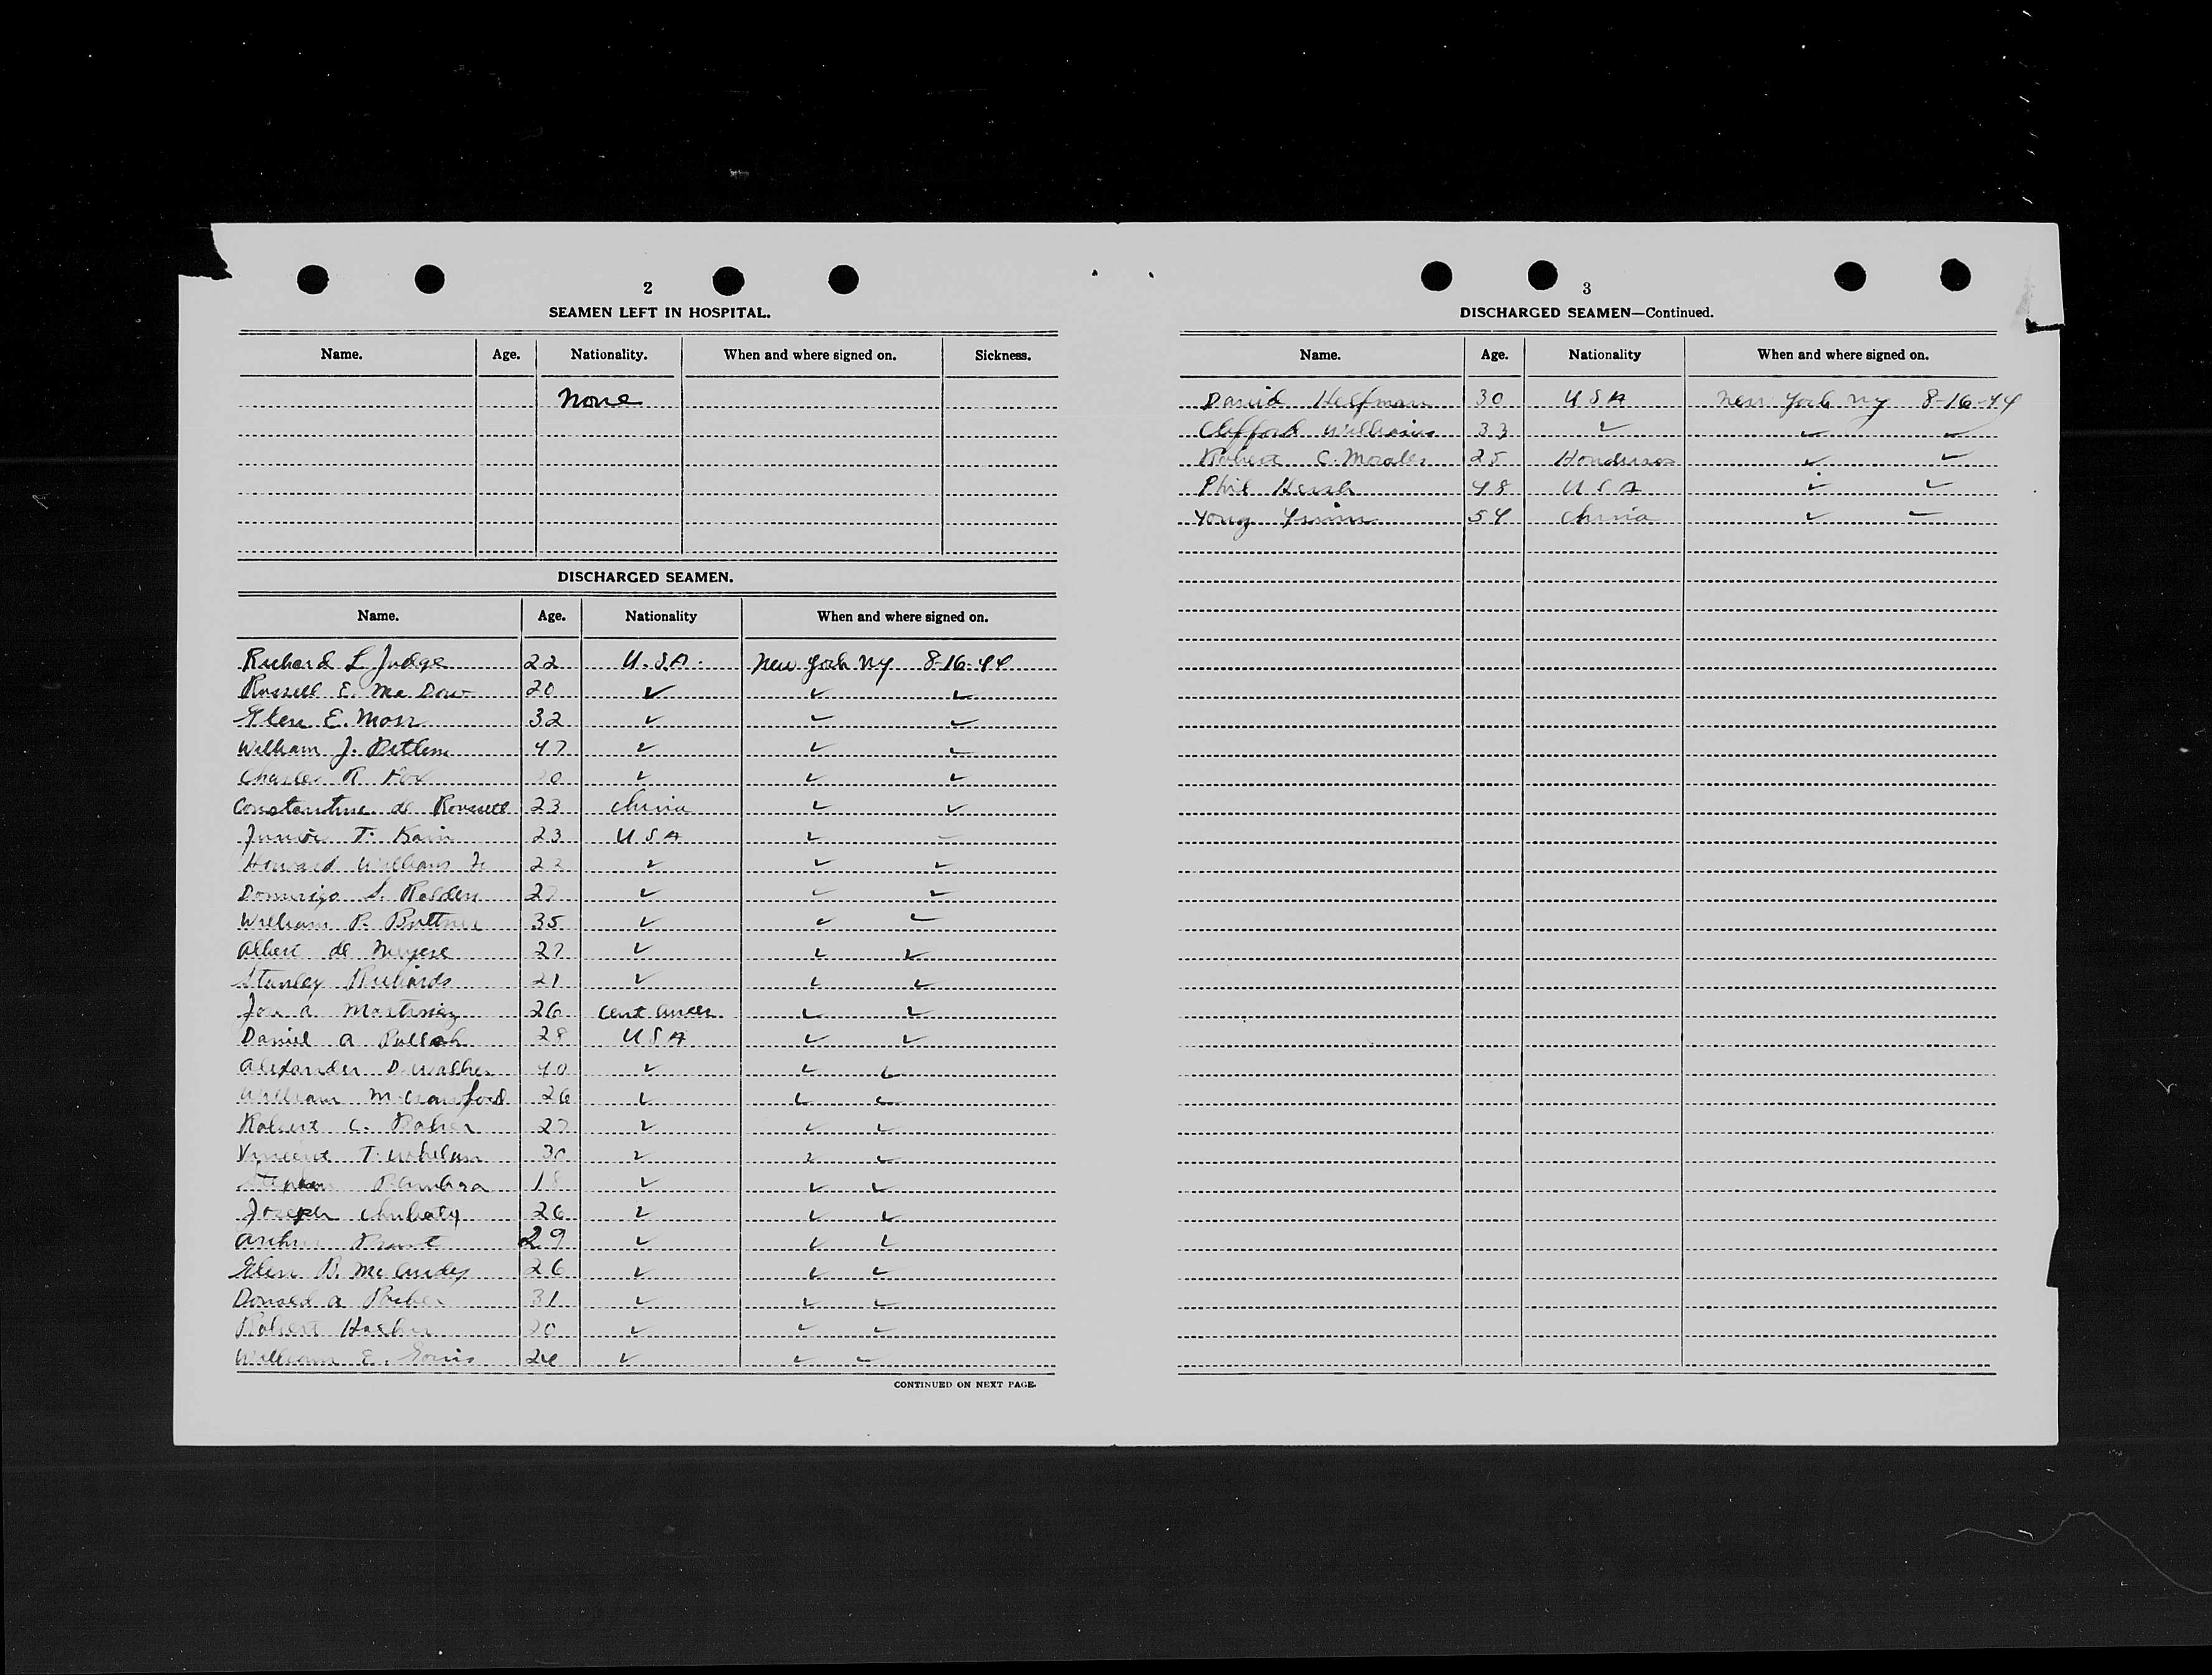 2
SEAMEN LEFT IN HOSPITAL.
Name. Age. Nationality. When and where signed on. Sickness.
None
DISCHARGED SEAMEN.
Name. Age. Nationality When and where signed on.
Richard L Judge 22 U.S.A. New York NY 8-16-44
Russell E. Mc Dow 20 ✓ ✓ ✓
Glen E. Moss 32 ✓ ✓ ✓
William J. 47 ✓ ✓ ✓
Charles R. Fox ✓ ✓ ✓
Constantine de 23 China ✓ ✓
Junior T. Kain 23 USA ✓ ✓
Howard Williams Jr 22 ✓ ✓ ✓
Domingo S. ✓ ✓ ✓
William P. Buttner 35 ✓ ✓ ✓
Albert de Meyere 27 ✓ ✓ ✓
Stanley Richards 21 ✓ ✓ ✓
Jose A Martinez 26 Cent Amer. ✓ ✓
Daniel A 28 USA ✓ ✓
Alexander D Walker 40 ✓ ✓ ✓
William M Crawford 26 ✓ ✓ ✓
Robert C. 27 ✓ ✓ ✓
Vincent T. Whelan 30 ✓ ✓ ✓
Stephen 18 ✓ ✓ ✓
Joseph 26 ✓ ✓ ✓
Arthur 29 ✓ ✓ ✓
Glen B. Mc 26 ✓ ✓ ✓
Donald A Parker 31 ✓ ✓ ✓
Robert 20 ✓ ✓ ✓
William E. ✓ ✓ ✓
CONTINUED ON NEXT PAGE.
3
DISCHARGED SEAMEN—Continued.
Name. Age. Nationality When and where signed on.
David Helfman 30 USA New York NY 8-16-44
Clifford Williams 33 ✓ ✓ ✓
Robert C. Morales 25 Honduras ✓ ✓
Phil Hersh 48 USA ✓ ✓
Yong 54 China ✓ ✓